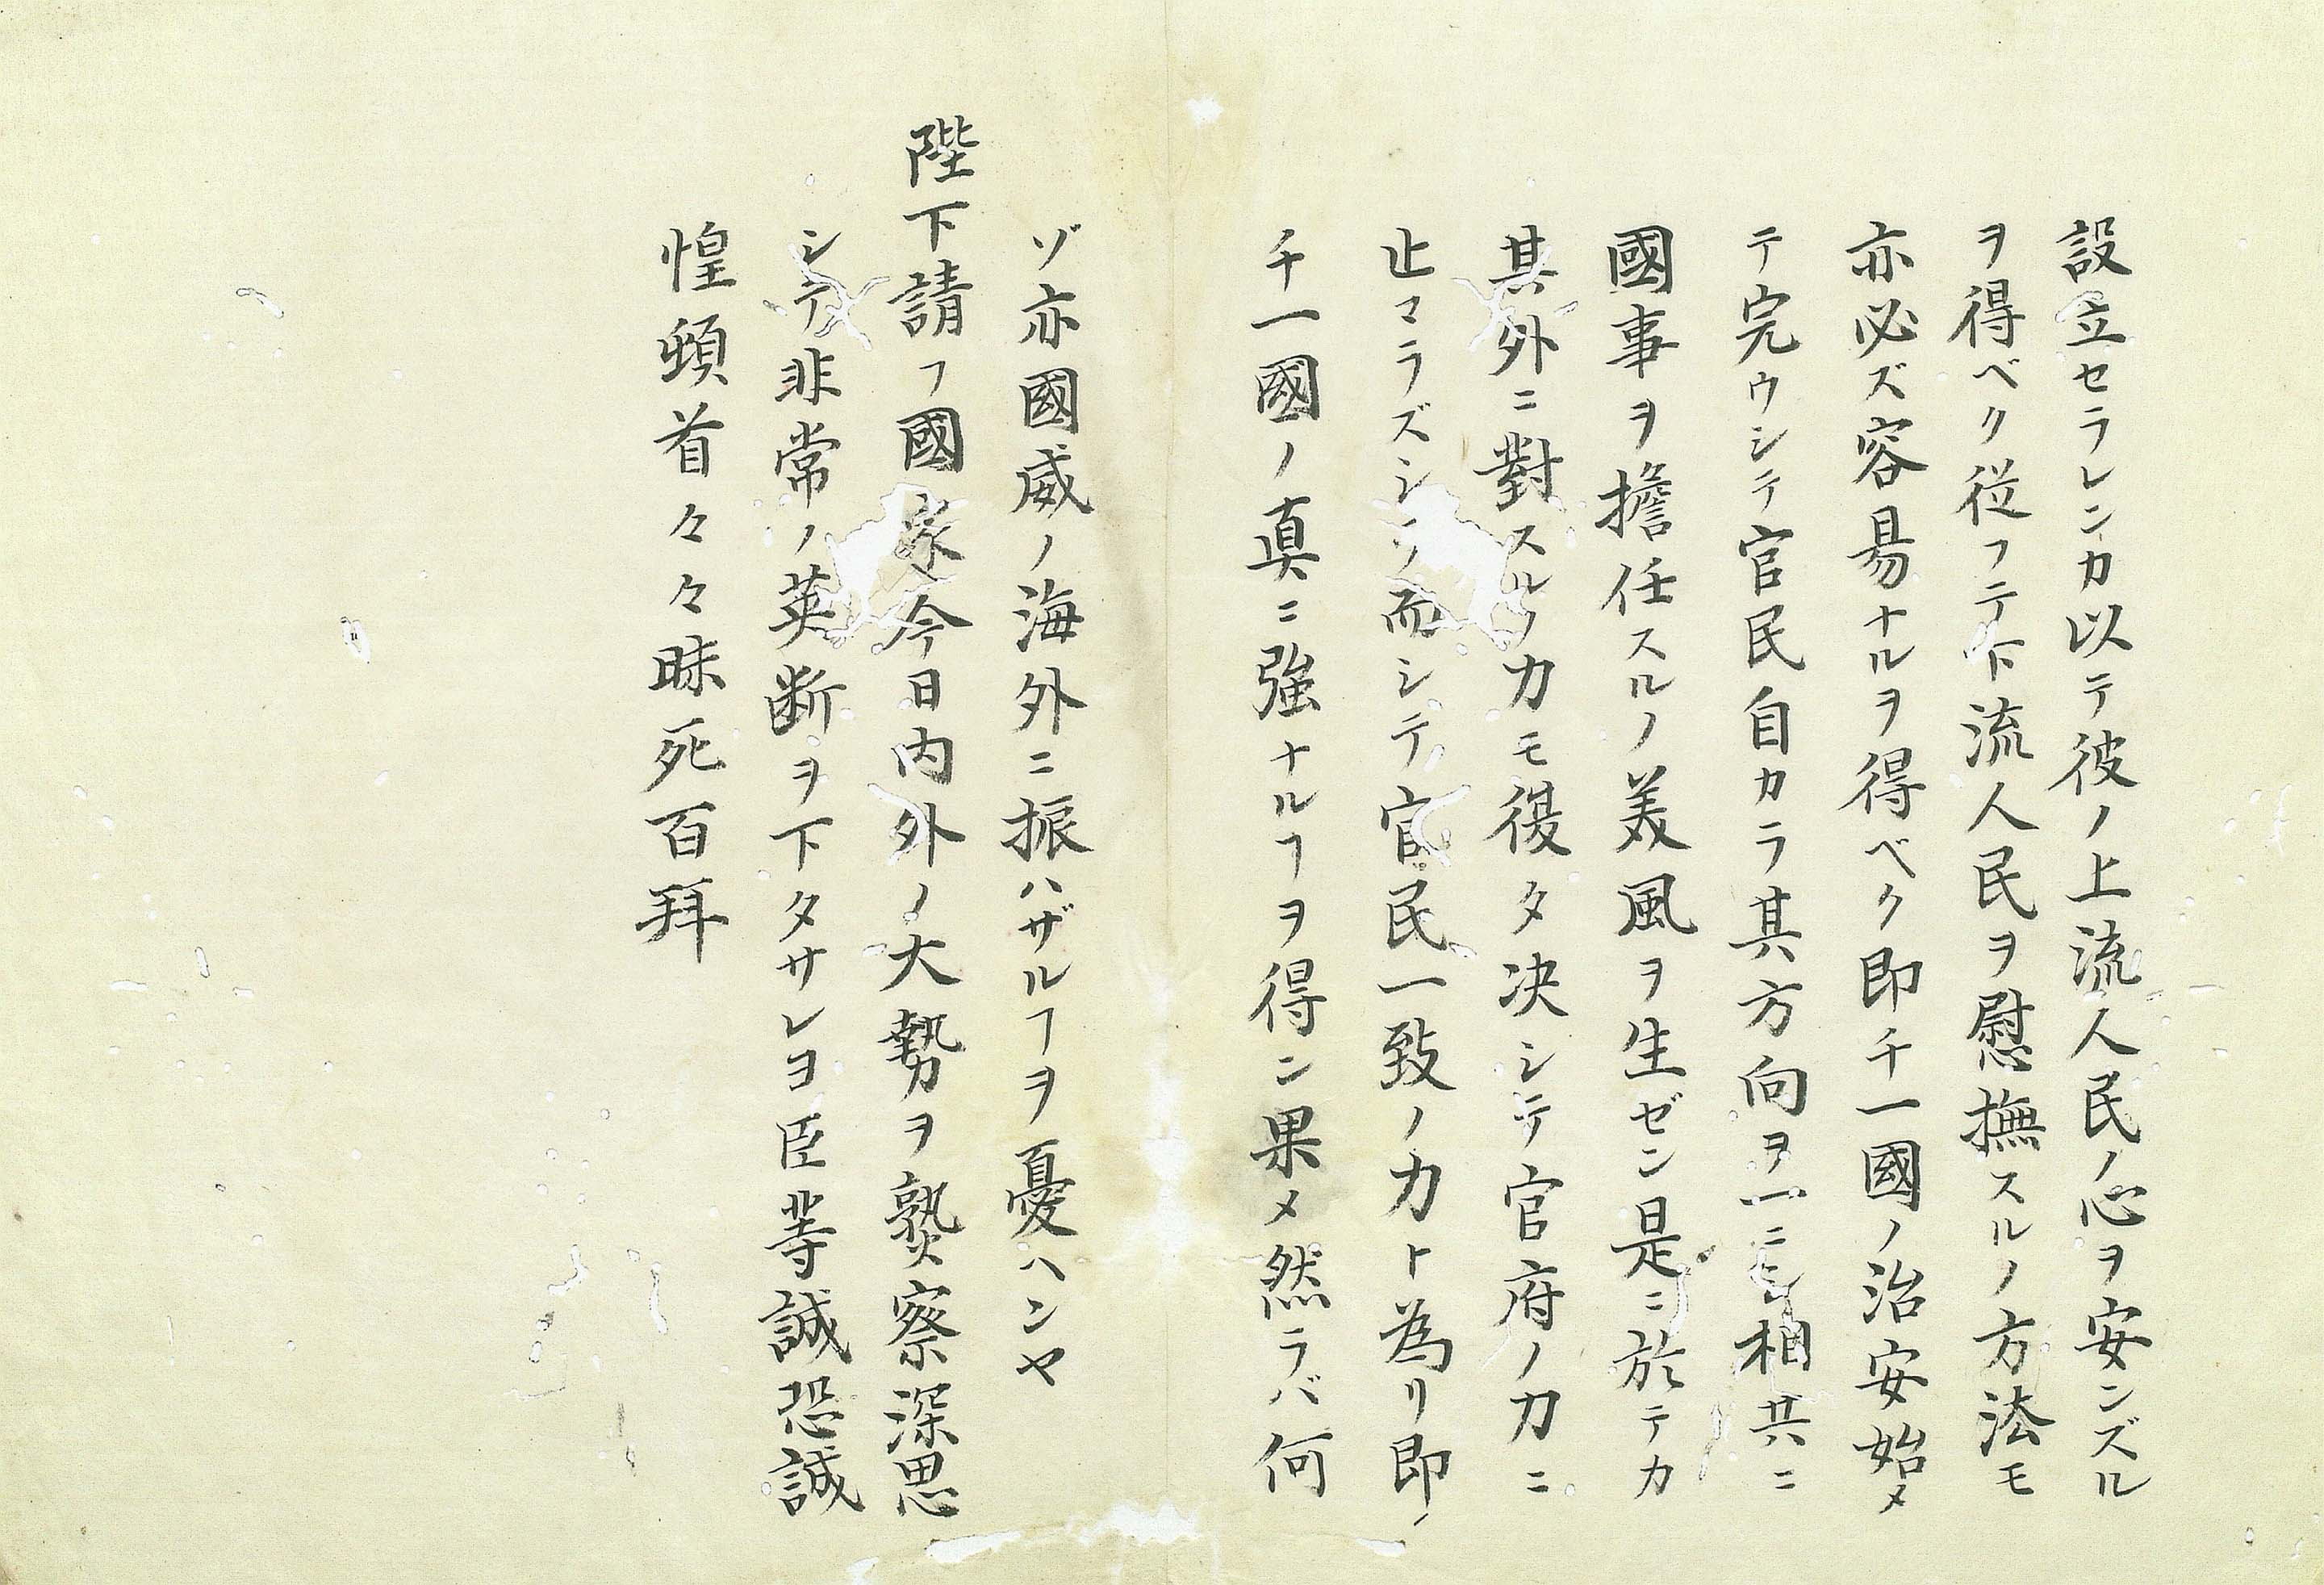 設立セラレンカ以テ彼ノ上流人民ノ心ヲ安ンズル
ヲ得ベク従フテ下流人民ヲ慰撫スルノ方法モ
亦必ズ容易ナルヲ得ベク即チ一國ノ治安始メ
テ完ウシテ官民自カラ其方向ヲ一ニシ相共ニ
國事ヲ擔任スルノ美風ヲ生ゼン是ニ於テカ
其外ニ對スルノ力モ復タ决シテ官府ノ力ニ
止マラズシテ而シテ官民一致ノ力ト為リ即
チ一國ノ真ニ強ナルヿヲ得ン果メ然ラバ何
ゾ亦國威ノ海外ニ振ハザルヿヲ憂ハンヤ
陛下請フ國家今日内外ノ大勢ヲ熟察深思
シテ非常ノ英断ヲ下タサレヨ臣等誠恐誠
惶頓首々々昧死百拜